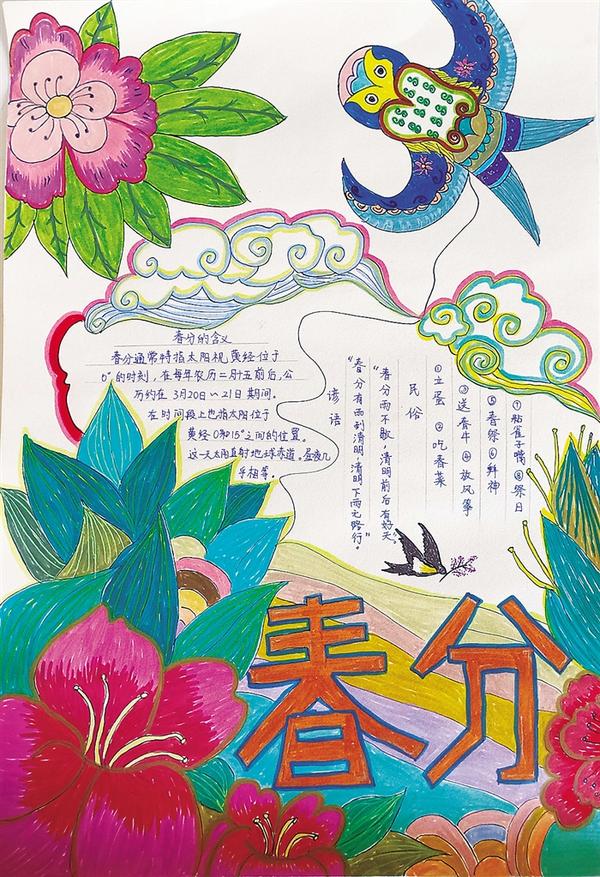 春分的含义
春分通常特指太阳视黄经位于
0°的时刻,在每年农历二月十五前后,公
历约在 3月20~21日 期间。
在时间段上也指太阳位于
黄经0°和15°之间的位置。
这一天太阳直射地球赤道。昼夜几
乎相等。
谚语
"春分有雨到清明,清明下雨无路行。"
"春分雨不歇,清明前后有好天。"
民俗
①立蛋 ②吃春菜
③送春牛 ④放风筝
⑤春祭 ⑥拜神
⑦粘雀子嘴 ⑧祭日
春分